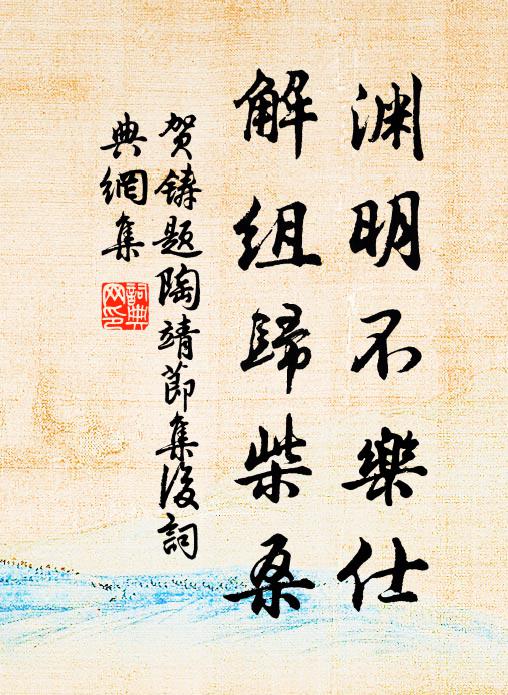 渊明不樂仕
解组歸柴桑
贺鑄题陶靖節集後詞
典網集
詞典
网印